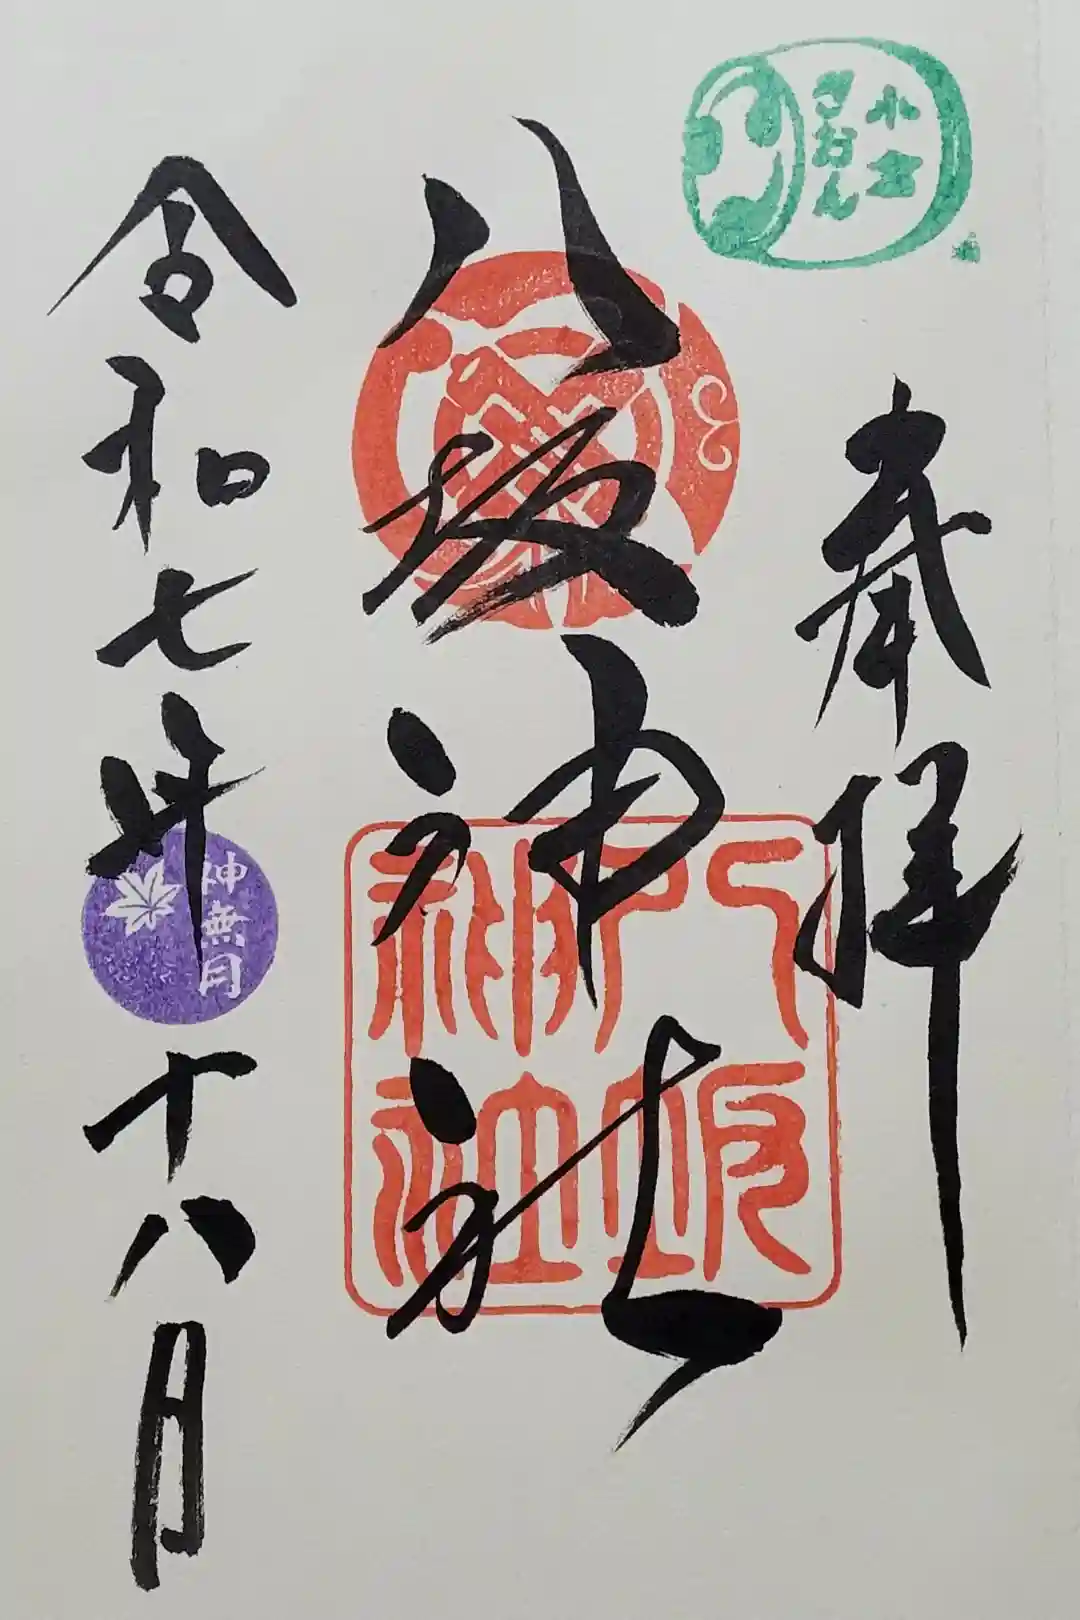 小倉
ぎおん
奉拝
八坂神社
八坂
神社
令和七年
神無月
十八日